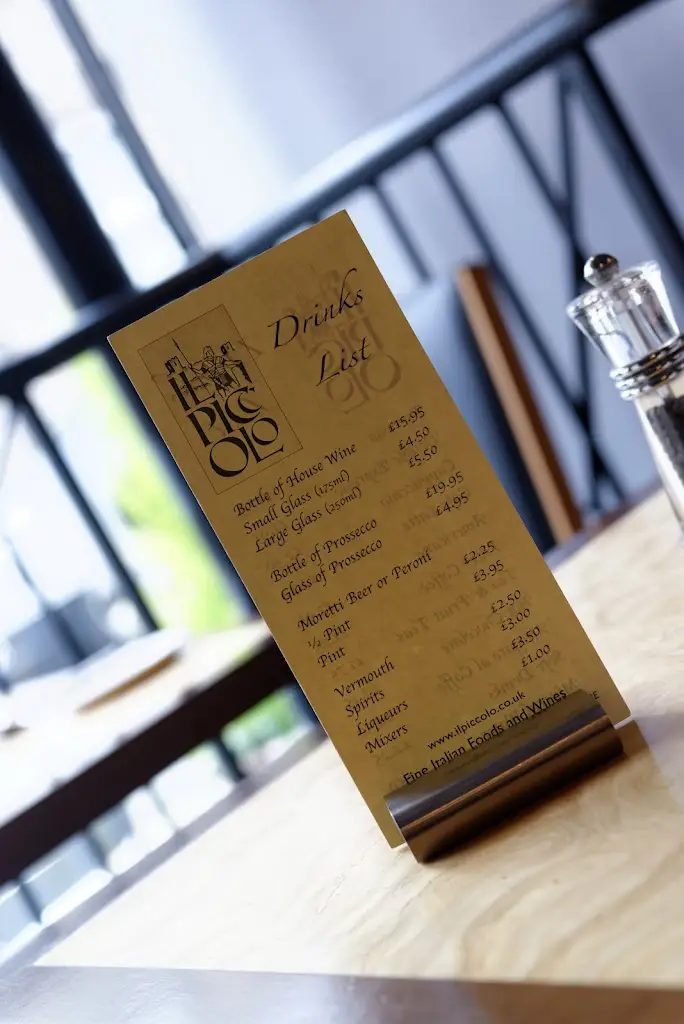 IL
PICC
OLO
Drinks
List
Bottle of House Wine £15.95
Small Glass (175ml) £4.50
Large Glass (250ml) £5.50
Bottle of Prossecco £19.95
Glass of Prossecco £4.95
Moretti Beer or Peroni
½ Pint £2.25
Pint £3.95
Vermouth £2.50
Spirits £3.00
Liqueurs £3.50
Mixers £1.00
www.ilpiccolo.co.uk
Fine Italian Foods and Wines